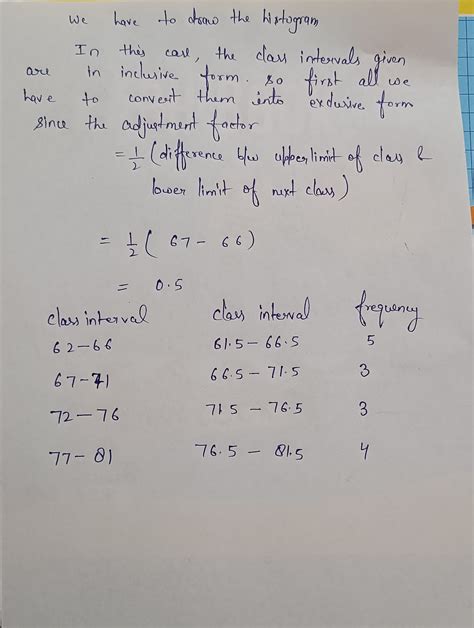 We have to draw the histogram
In this case, the class intervals given
are in inclusive form. so first all we
have to convert them into exclusive form
since the adjustment factor
= 1/2 (difference b/w upper limit of class &
lower limit of next class)
= 1/2 ( 67 - 66)
= 0.5
class interval class interval frequency
62-66 61.5-66.5 5
67-71 66.5-71.5 3
72-76 71.5-76.5 3
77-81 76.5-81.5 4